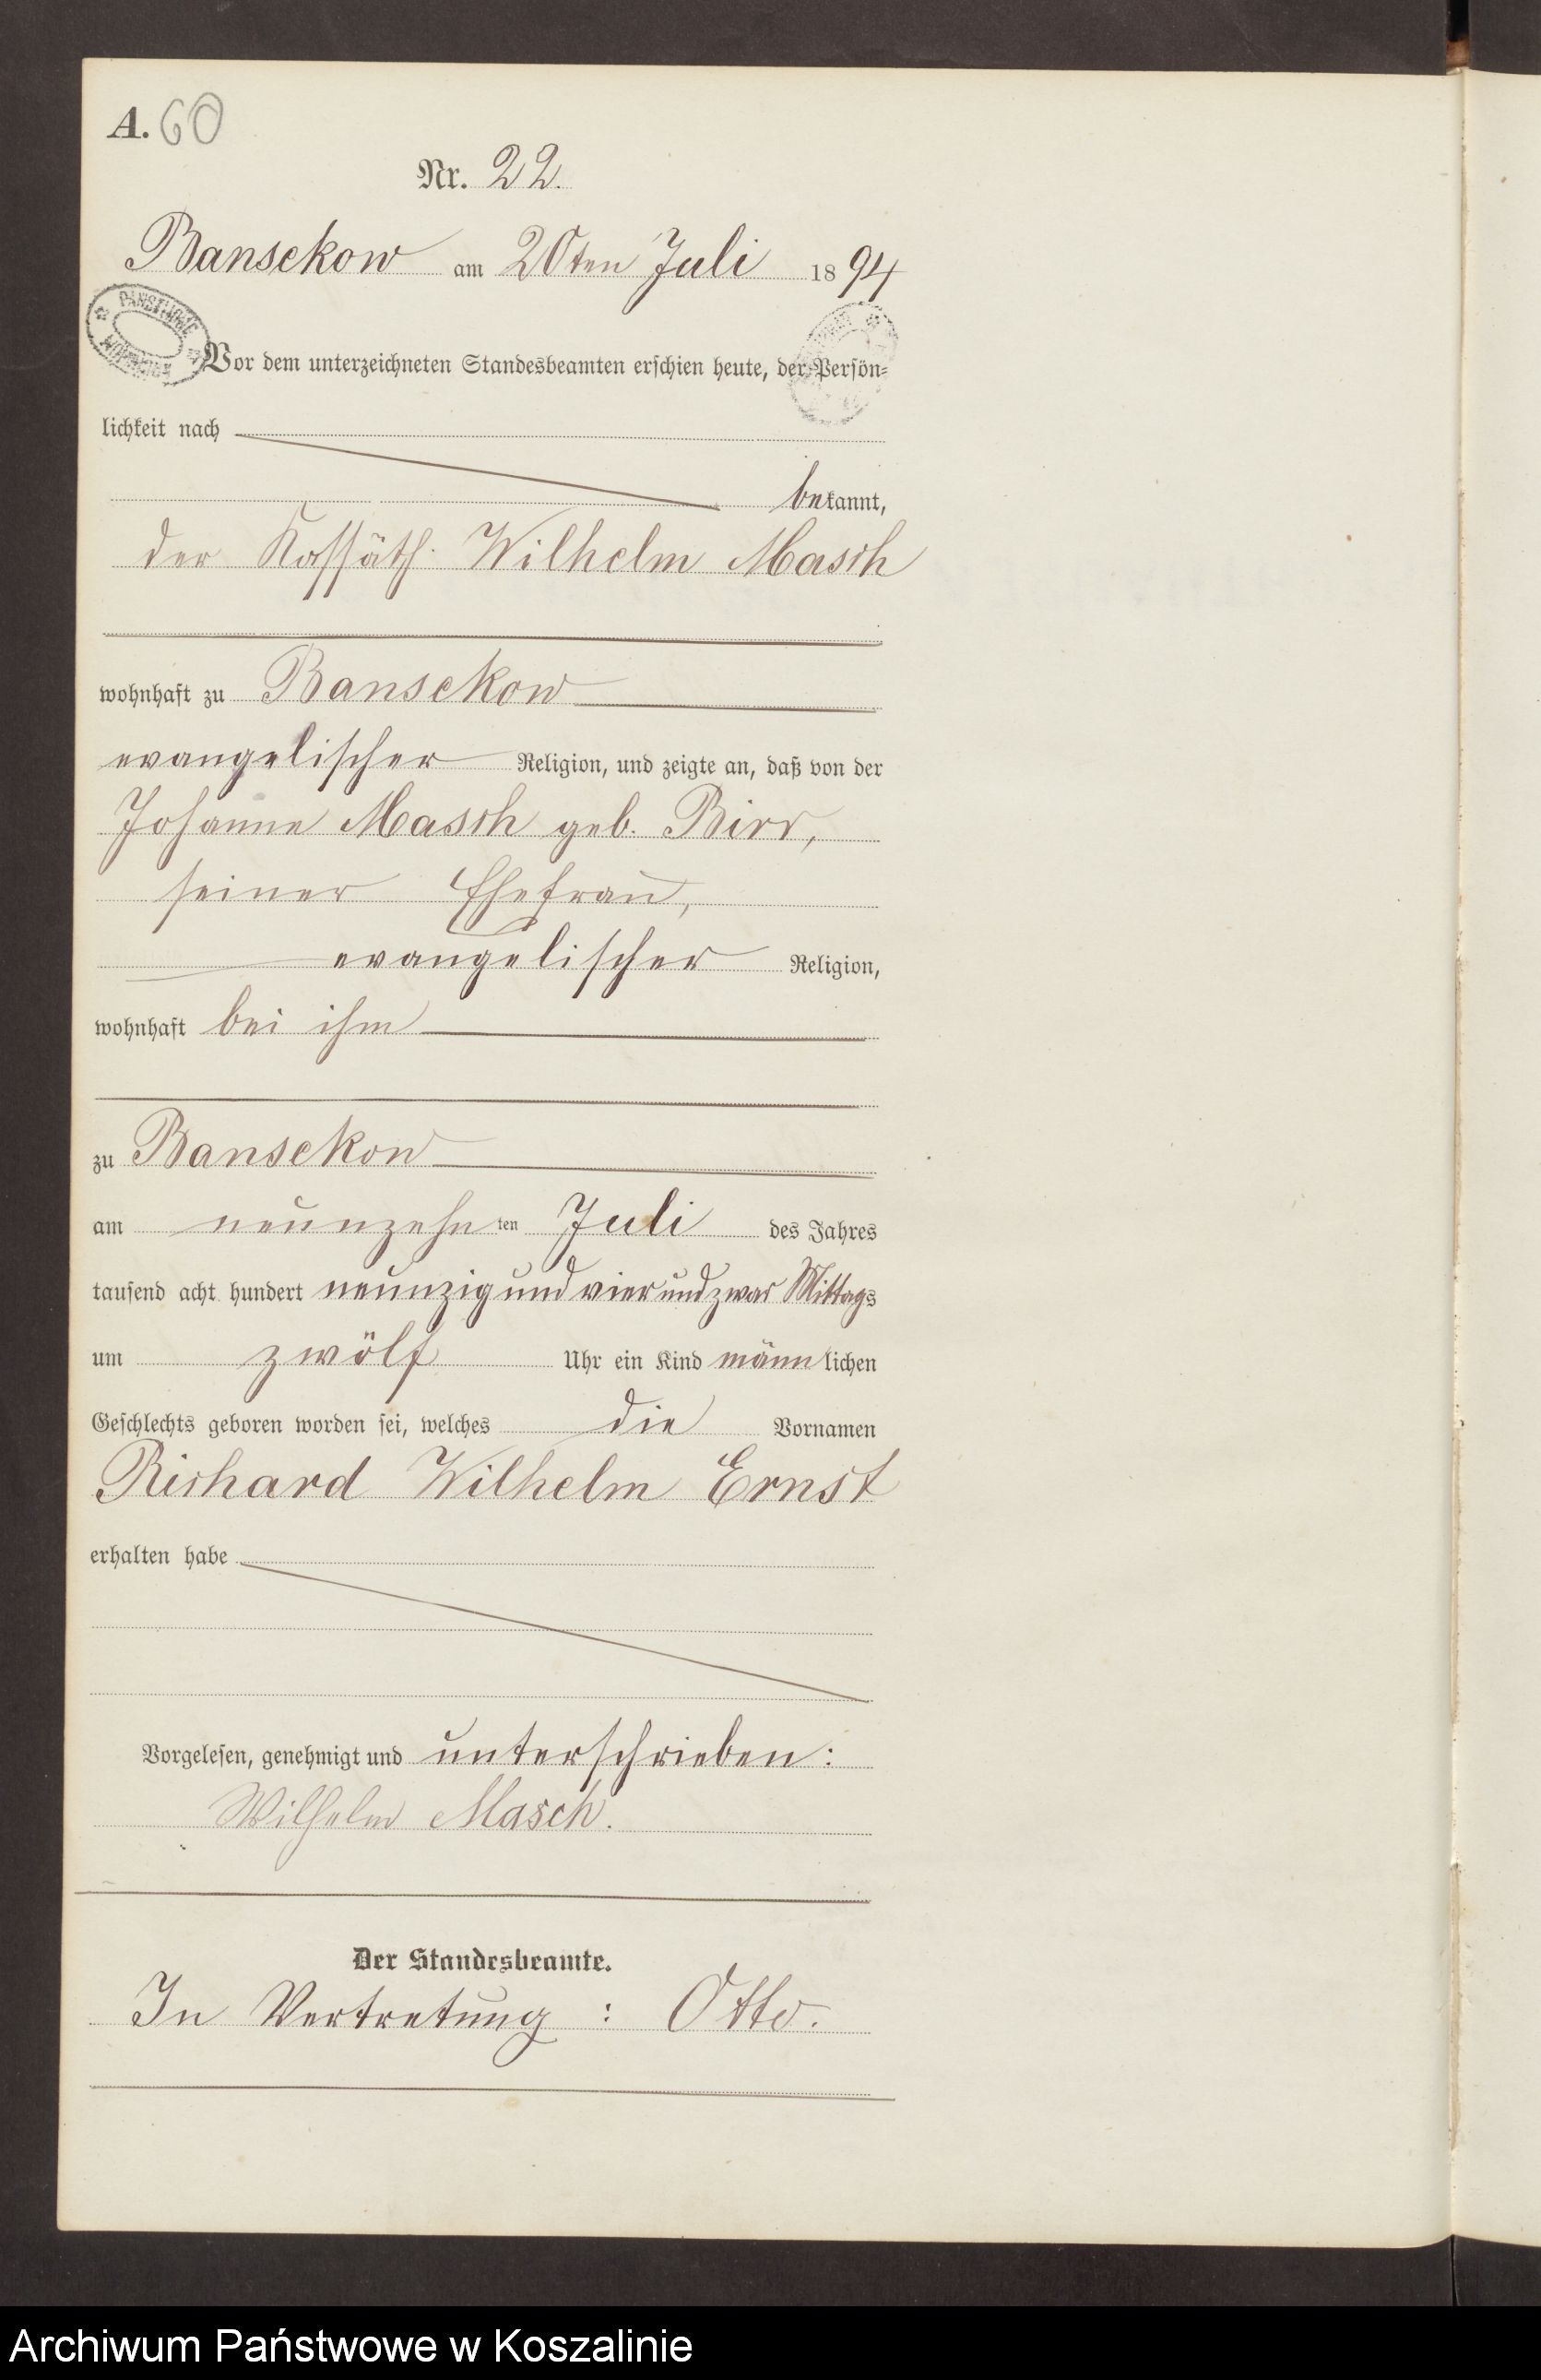 A. 60
Nr. 22.
Bansekow am 20ten Juli 1894
PAŃSTWOWE
ARCHIWUM
Vor dem unterzeichneten Standesbeamten erschien heute, der Persön-
lichkeit nach
bekannt,
der Kossäth Wilhelm Masch
wohnhaft zu Bansekow
evangelischer Religion, und zeigte an, daß von der
Johanne Masch geb. Birr,
seiner Ehefrau,
evangelischer Religion,
wohnhaft bei ihm
zu Bansekow
am neunzehnten Juli des Jahres
tausend acht hundert neunzig und vier und zwar Mittags
um zwölf Uhr ein Kind männlichen
Geschlechts geboren worden sei, welches die Vornamen
Richard Wilhelm Ernst
erhalten habe
Vorgelesen, genehmigt und unterschrieben:
Wilhelm Masch.
Der Standesbeamte.
In Vertretung: Otto.
Archiwum Państwowe w Koszalinie